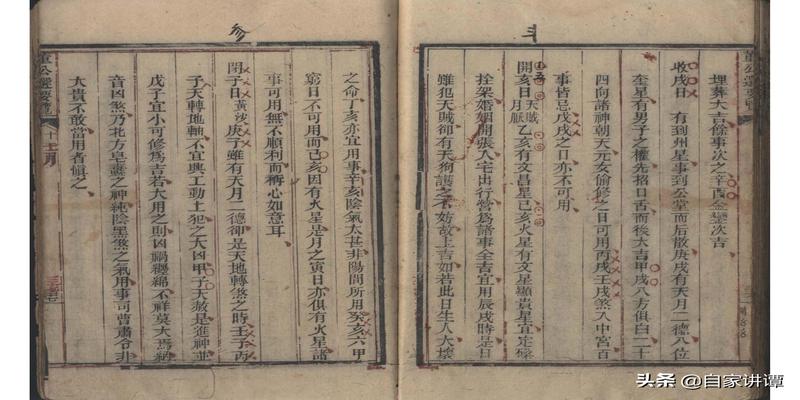 董公選要覽
埋葬大吉餘事次之辛酉金鑾次吉
收戌日 有到州星事到公堂而后散庚戌有天月二德八位
奎星有男子之權先招口舌而後大吉甲戌八方俱白二十
四向諸神朝天元女偷修之日可用丙戌壬戌煞入中宮百
事皆忌戊戌之日亦不可用
開亥日天賊月厭乙亥有文昌星己亥火星有文星顯貴星宜定磉
拴架婚姻開張入宅出行營為諸事全吉宜用辰戌時是日
雖犯天賊卻有天狗護之不妨故上吉如若此日生人大壞
之命丁亥亦宜用事辛亥陰氣太甚非陽間所用癸亥六甲
窮日不可用而己亥因有火星是月之寅日亦俱有火星諸
事可用無不順利而稱心如意耳
閉子日黃沙庚子雖有天月二德卻是天地轉煞之時壬子丙
子天轉地軸不宜興工動土犯之大凶甲子天赦是進神並
戊子宜小可修為吉若大用之則凶禍纏綿不祥莫大焉納
音凶煞乃北方皂纛之神純陰黑煞之氣用事可曹肅令非
大貴不敢當用者慎之
董公選要覽
十二月
头条 @自家讲谭